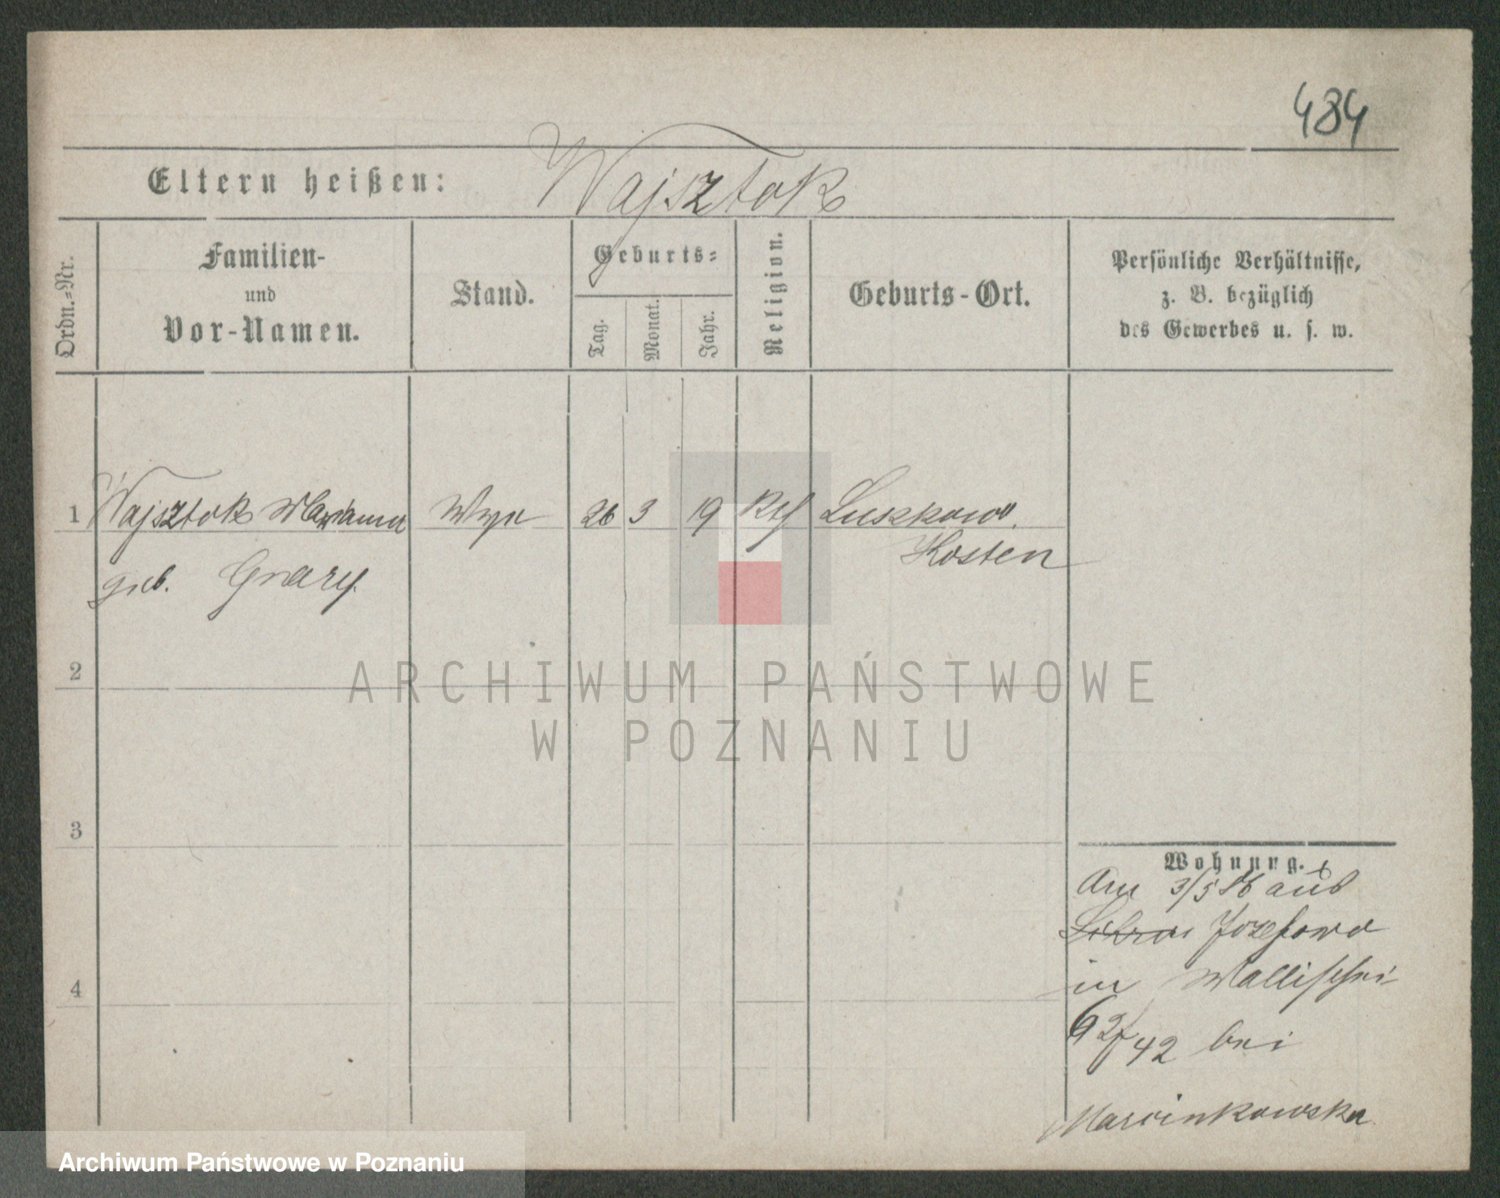 484
Eltern heißen: Wajsztok
Ordn.-Nr.
Familien-
und
Vor-Namen.
Stand.
Geburts-
Tag.
Monat.
Jahr.
Religion.
Geburts-Ort.
Persönliche Verhältnisse,
z. B. bezüglich
des Gewerbes u. s. w.
1 Wajsztok Marianna 26 3 19 Kth Luszkowo.
Kosten
geb.
2
ARCHIWUM PAŃSTWOWE
W POZNANIU
3
Wohnung.
Am 3/5 86 aus
Jozefowo
in Wallischei
42 bei
4
Marcinkowska
Archiwum Państwowe w Poznaniu